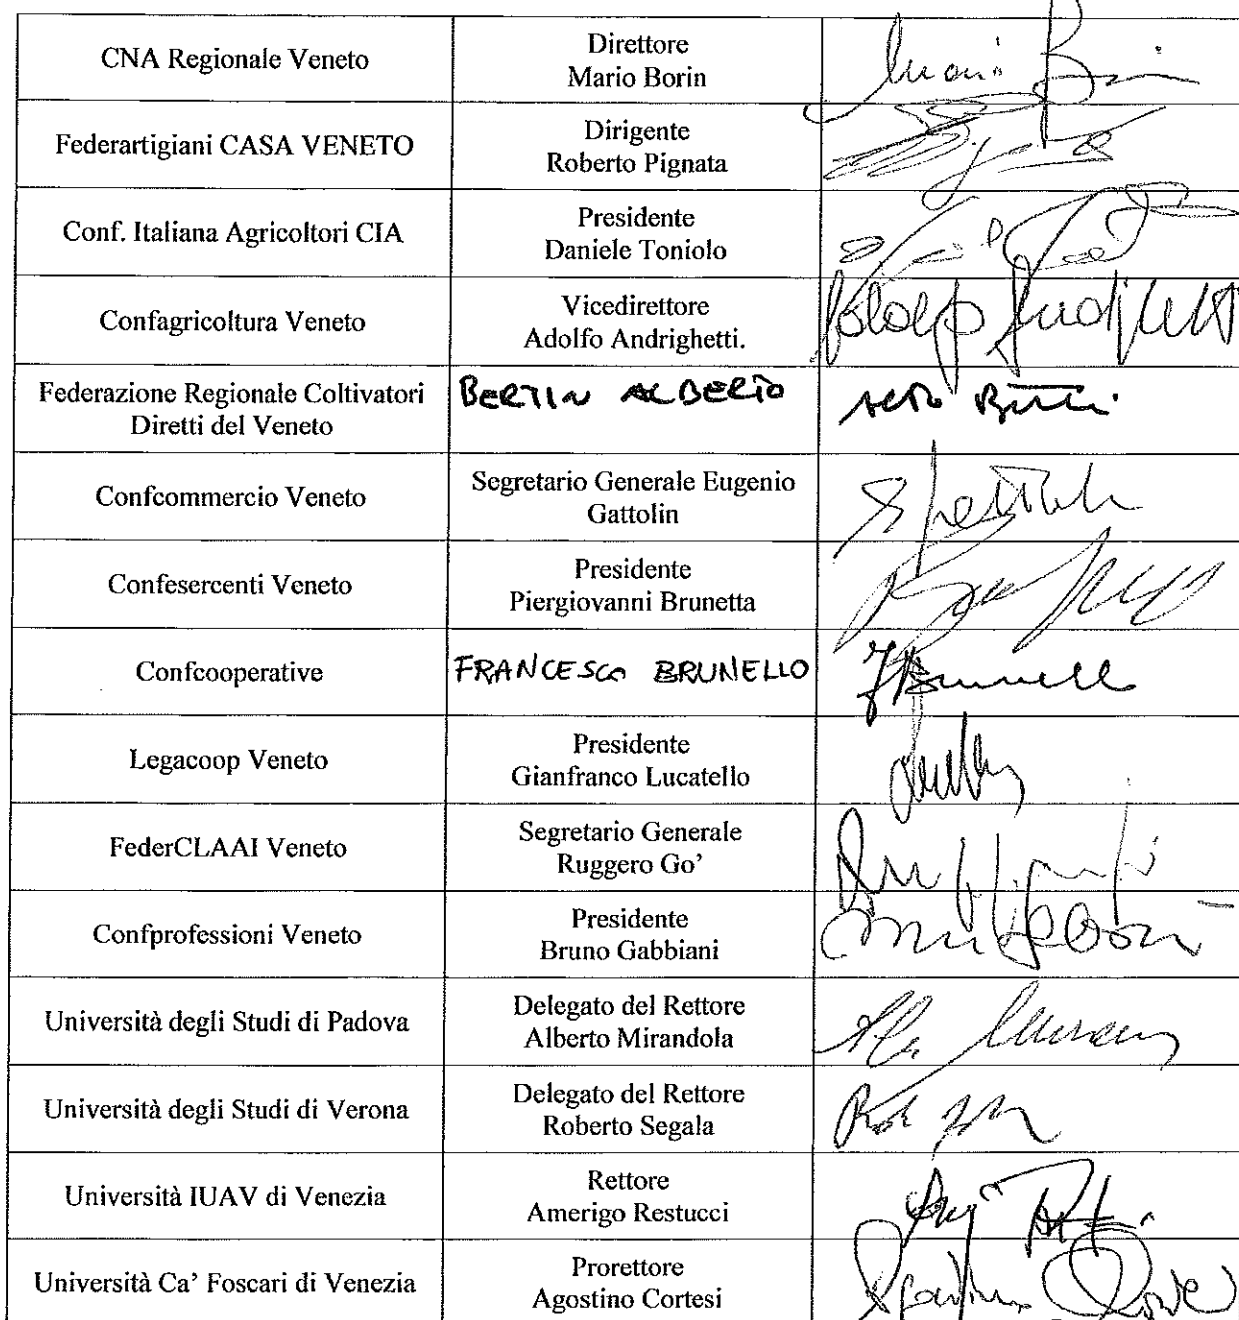 CNA Regionale Veneto
Direttore
Mario Borin
Federartigiani CASA VENETO
Dirigente
Roberto Pignata
Conf. Italiana Agricoltori CIA
Presidente
Daniele Toniolo
Confagricoltura Veneto
Vicedirettore
Adolfo Andrighetti.
Federazione Regionale Coltivatori
Diretti del Veneto
BERTIN ALBERTO
Confcommercio Veneto
Segretario Generale Eugenio
Gattolin
Confesercenti Veneto
Presidente
Piergiovanni Brunetta
Confcooperative
FRANCESCO BRUNELLO
Legacoop Veneto
Presidente
Gianfranco Lucatello
FederCLAAI Veneto
Segretario Generale
Ruggero Go’
Confprofessioni Veneto
Presidente
Bruno Gabbiani
Università degli Studi di Padova
Delegato del Rettore
Alberto Mirandola
Università degli Studi di Verona
Delegato del Rettore
Roberto Segala
Università IUAV di Venezia
Rettore
Amerigo Restucci
Università Ca’ Foscari di Venezia
Prorettore
Agostino Cortesi